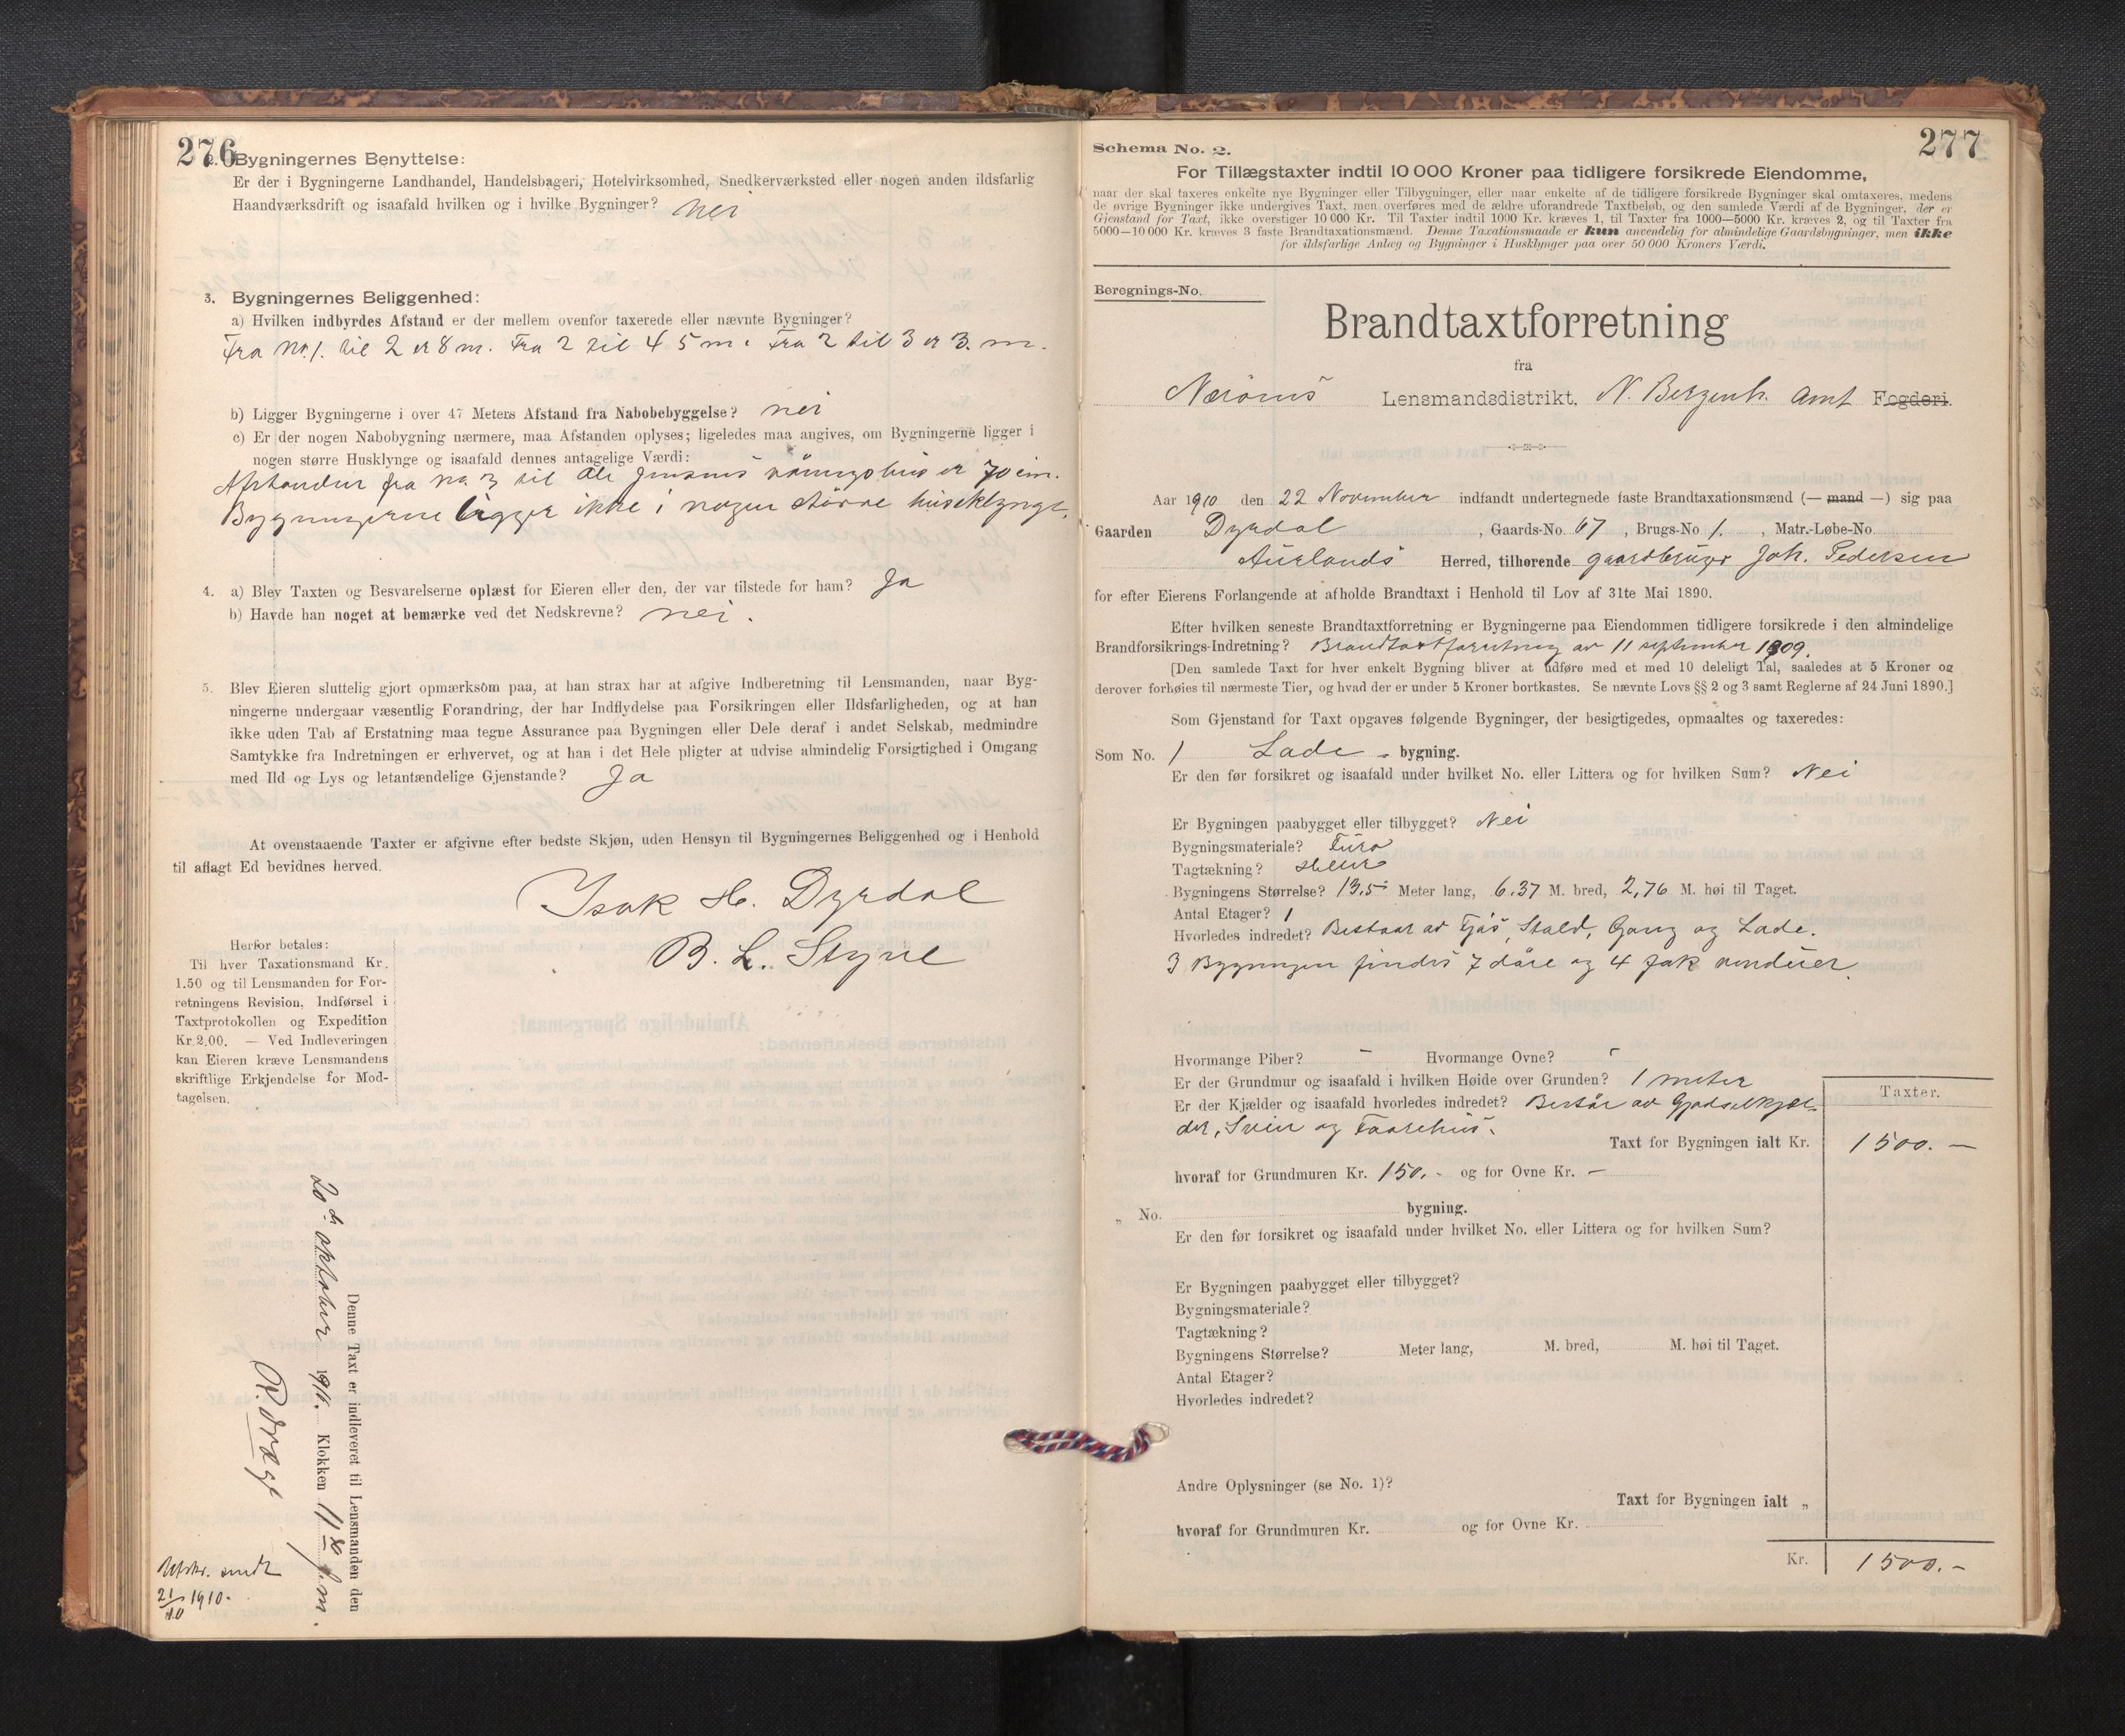 276
2. Bygningernes Benyttelse:
Er der i Bygningerne Landhandel, Handelsbageri, Hotelvirksomhed, Snedkerværksted eller nogen anden ildsfarlig
Haandværksdrift og isaafald hvilken og i hvilke Bygninger? nei
3. Bygningernes Beliggenhed:
a) Hvilken indbyrdes Afstand er der mellem ovenfor taxerede eller nævnte Bygninger?
Fra No. 1. til 2 er 8 m. Fra 2 til 4 5 m. Fra 2 til 3 er 3. m.
b) Ligger Bygningerne i over 47 Meters Afstand fra Nabobebyggelse? nei
c) Er der nogen Nabobygning nærmere, maa Afstanden oplyses; ligeledes maa angives, om Bygningerne ligger i
nogen større Husklynge og isaafald dennes antagelige Værdi:
Afstanden fra no. 3 til Ole Jensens våningshus er 70 m.
Bygningerne ligger ikke i nogen större huseklynge.
4. a) Blev Taxten og Besvarelserne oplæst for Eieren eller den, der var tilstede for ham? Ja
b) Havde han noget at bemærke ved det Nedskrevne? nei.
5. Blev Eieren sluttelig gjort opmærksom paa, at han strax har at afgive Indberetning til Lensmanden, naar Byg-
ningerne undergaar væsentlig Forandring, der har Indflydelse paa Forsikringen eller Ildsfarligheden, og at han
ikke uden Tab af Erstatning maa tegne Assurance paa Bygningen eller Dele deraf i andet Selskab, medmindre
Samtykke fra Indretningen er erhvervet, og at han i det Hele pligter at udvise almindelig Forsigtighed i Omgang
med Ild og Lys og letantændelige Gjenstande? Ja
At ovenstaaende Taxter er afgivne efter bedste Skjøn, uden Hensyn til Bygningernes Beliggenhed og i Henhold
til aflagt Ed bevidnes herved.
Isak H. Dyrdal
B. L. Styve
Herfor betales:
Til hver Taxationsmand Kr.
1.50 og til Lensmanden for For-
retningens Revision, Indførsel i
Taxtprotokollen og Expedition
Kr. 2.00. — Ved Indleveringen
kan Eieren kræve Lensmandens
skriftlige Erkjendelse for Mod-
tagelsen.
Denne Taxt er indleveret til Lensmanden den
20de oktober 1910. Klokken 11 30 f.m.
Afskr. sendt
21/10 1910.
277
Schema No. 2.
For Tillægstaxter indtil 10 000 Kroner paa tidligere forsikrede Eiendomme,
naar der skal taxeres enkelte nye Bygninger eller Tilbygninger, eller naar enkelte af de tidligere forsikrede Bygninger skal omtaxeres, medens
de øvrige Bygninger ikke undergives Taxt, men overføres med de ældre uforandrede Taxtbeløb, og den samlede Værdi af de Bygninger, der er
Gjenstand for Taxt, ikke overstiger 10 000 Kr. Til Taxter indtil 1000 Kr. kræves 1, til Taxter fra 1000—5000 Kr. kræves 2, og til Taxter fra
5000—10 000 Kr. kræves 3 faste Brandtaxationsmænd. Denne Taxationsmaade er kun anvendelig for almindelige Gaardsbygninger, men ikke
for ildsfarlige Anlæg og Bygninger i Husklynger paa over 50 000 Kroners Værdi.
Beregnings-No.
Brandtaxtforretning
fra
Nærøens Lensmandsdistrikt, N. Bergenh. Amt Fogderi.
Aar 1910 den 22 November indfandt undertegnede faste Brandtaxationsmænd (— mand —) sig paa
Gaarden Dyrdal, Gaards-No. 67, Brugs-No 1., Matr.-Løbe-No.
Aurlands Herred, tilhørende gaardbruger Joh. Pedersen
for efter Eierens Forlangende at afholde Brandtaxt i Henhold til Lov af 31te Mai 1890.
Efter hvilken seneste Brandtaxtforretning er Bygningerne paa Eiendommen tidligere forsikrede i den almindelige
Brandforsikrings-Indretning? Brandtaxtforretning av 11 september 1909.
[Den samlede Taxt for hver enkelt Bygning bliver at udføre med et med 10 deleligt Tal, saaledes at 5 Kroner og
derover forhøies til nærmeste Tier, og hvad der er under 5 Kroner bortkastes. Se nævnte Lovs §§ 2 og 3 samt Reglerne af 24 Juni 1890.]
Som Gjenstand for Taxt opgaves følgende Bygninger, der besigtigedes, opmaaltes og taxeredes:
Som No. 1 Lade - bygning.
Er den før forsikret og isaafald under hvilket No. eller Littera og for hvilken Sum? Nei
Er Bygningen paabygget eller tilbygget? Nei
Bygningsmateriale? Furo
Tagtækning? Heller
Bygningens Størrelse? 13,5 Meter lang, 6.37 M. bred, 2,76 M. høi til Taget.
Antal Etager? 1
Hvorledes indredet? Bestaar av Fjös, Stald, Gang og Lade.
I Bygningen findes 7 döre og 4 fak vindüer.
Hvormange Piber? - Hvormange Ovne? -
Er der Grundmur og isaafald i hvilken Høide over Grunden? 1 meter
Er der Kjælder og isaafald hvorledes indredet? Består av Gjødselkjæl-
der, Svin og Faarehus.
Taxter.
Taxt for Bygningen ialt Kr. 1500. —
hvoraf for Grundmuren Kr. 150. - og for Ovne Kr. —
„ No. bygning.
Er den før forsikret og isaafald under hvilket No. eller Littera og for hvilken Sum?
Er Bygningen paabygget eller tilbygget?
Bygningsmateriale?
Tagtækning?
Bygningens Størrelse? Meter lang, M. bred, M. høi til Taget.
Antal Etager?
Hvorledes indredet?
Andre Oplysninger (se No. 1)?
Taxt for Bygningen ialt „
hvoraf for Grundmuren Kr. og for Ovne Kr.
Kr. 1500. -